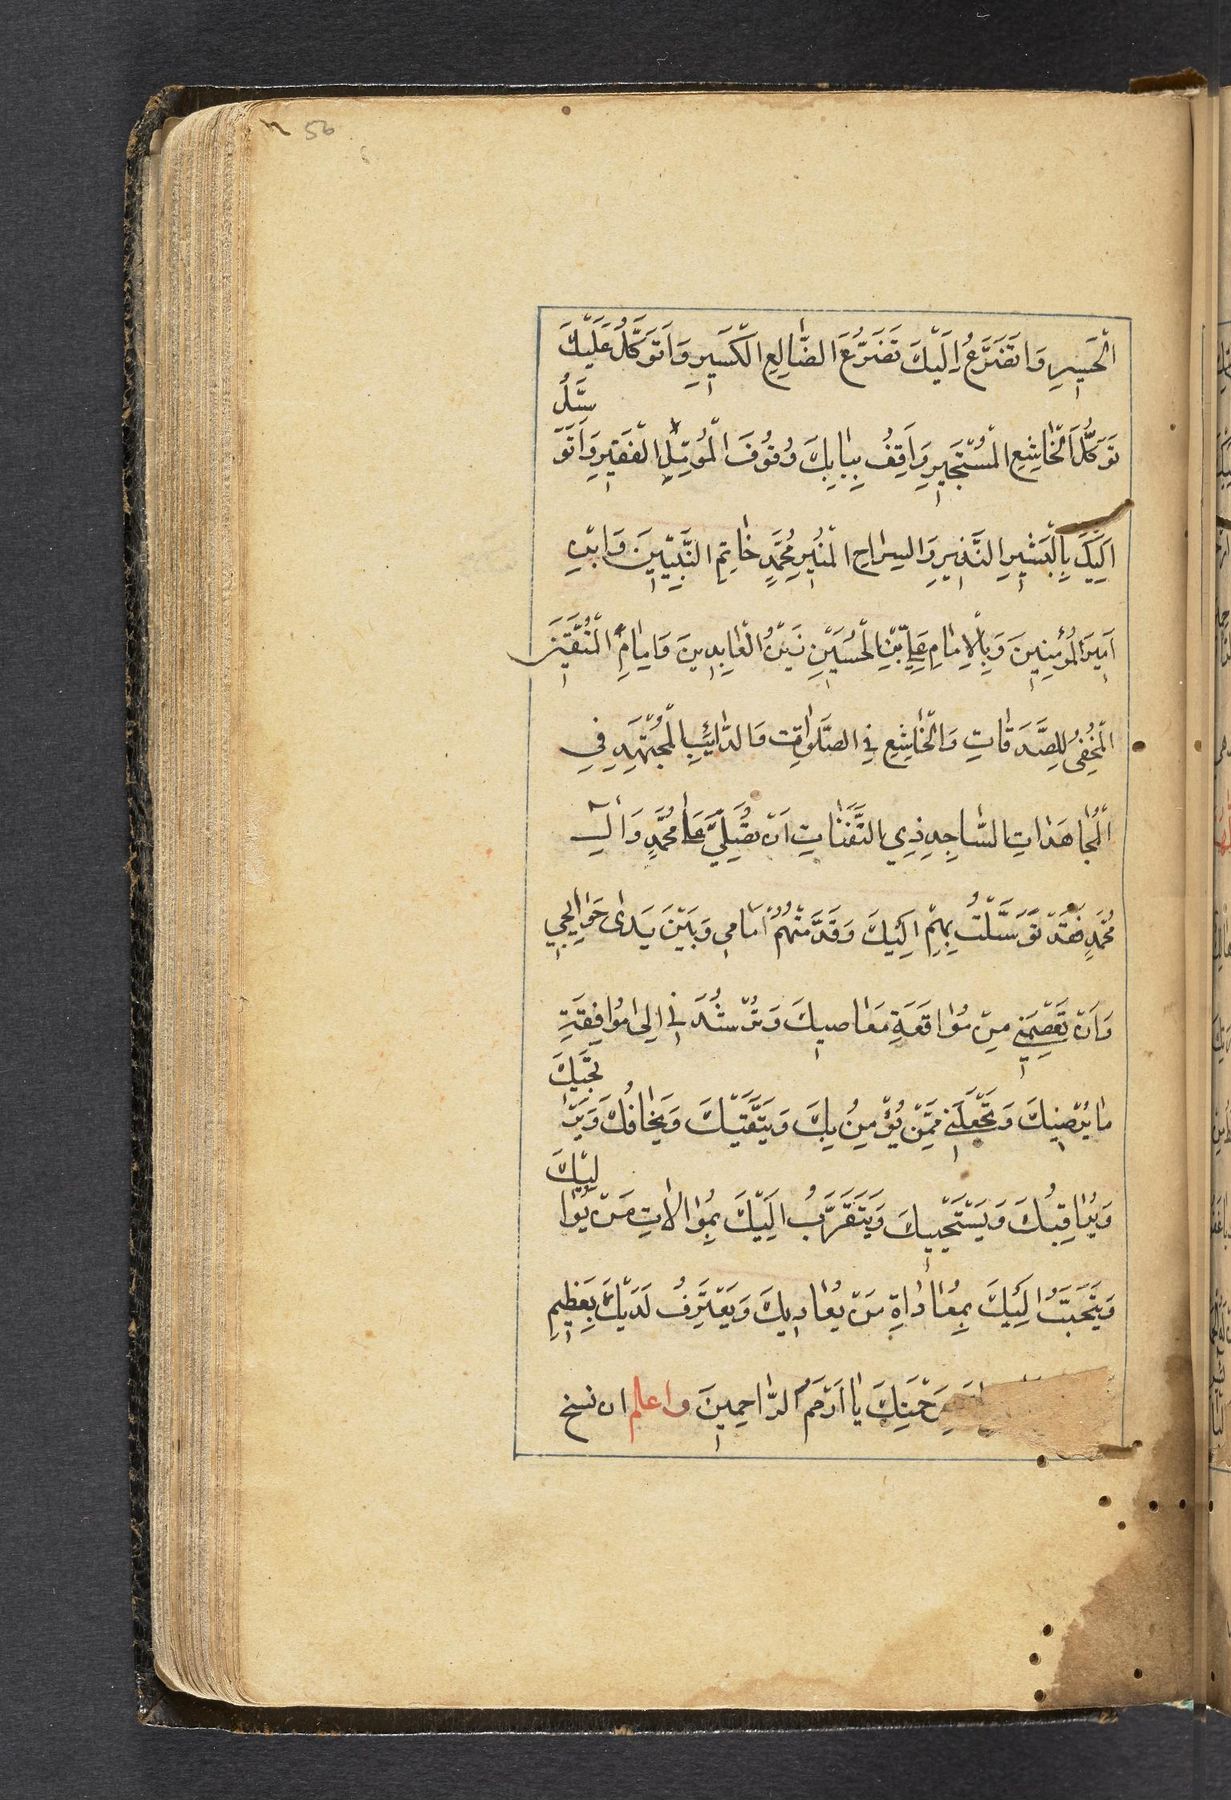 56
الْحَسِيرِ وَاَتَضَرَّعُ اِلَيْكَ تَضَرُّعَ الضَّالِعِ الْكَسِيرِ وَاَتَوَكَّلُ عَلَيْكَ
تَوَكُّلَ الْخَاشِعِ الْمُسْتَجِيرِ وَاَقِفُ بِبَابِكَ وُقُوفَ الْمُؤَمِّلِ الْفَقِيرِ وَاَتَوَسَّلُ
اِلَيْكَ بِالْبَشِيرِ النَّذِيرِ وَالسِرَاجِ الْمُنِيرِ مُحَمَّدٍ خَاتِمِ النَّبِيِّينَ وَابْنِ
اَمِيرَ الْمُؤْمِنِينَ وَبِالْاِمَامِ عَلِيِّ بْنِ الْحُسَيْنِ زَيْنُ الْعَابِدِينَ وَاِمَامُ الْمُتَّقِينَ
الْمُخْفِى لِلصَّدَقَاتِ وَالْخَاشِعِ فِي الصَّلَوَاتِ وَالدَّائِبِ الْمُجْتَهِدِ فِي
الْمُجَاهَدَاتِ السَّاجِدِ ذِي الثَّفَنَاتِ اَنْ تُصَلِّيَ عَلَى مُحَمَّدٍ وَآلِ
مُحَمَّدٍ فَقَدْ تَوَسَّلْتُ بِهِمْ اِلَيْكَ وَقَدَّمْتُهُمْ اَمَامِي وَبَيْنَ يَدَىْ حَوَائِجِي
وَاَنْ تَعْصِمَنِي مِنْ مُوَاقَعَةِ مَعَاصِيكَ وَتُرْشِدَنِي اِلَى مُوَافِقَةِ
مَا يُرْضِيكَ وَتَجْعَلَنِي مِمَّنْ يُؤْمِنُ بِكَ وَيَتَّقِيكَ وَيَخَافُكَ وَيَرْتَجِيكَ
وَيُرَاقِبُكَ وَيَسْتَحْيِيكَ وَيَتَقَرَّبُ اِلَيْكَ بِمُوَالَاتِ مَنْ يُوَالِيكَ
وَيَتَحَبَّبُ اِلَيْكَ بِمُعَادَاةِ مَنْ يُعَادِيكَ وَيَعْتَرِفُ لَدَيْكَ بِعَظِيمِ
رَحْمَتِكَ يَا اَرْحَمَ الرَّاحِمِينَ واعلم ان نسخ